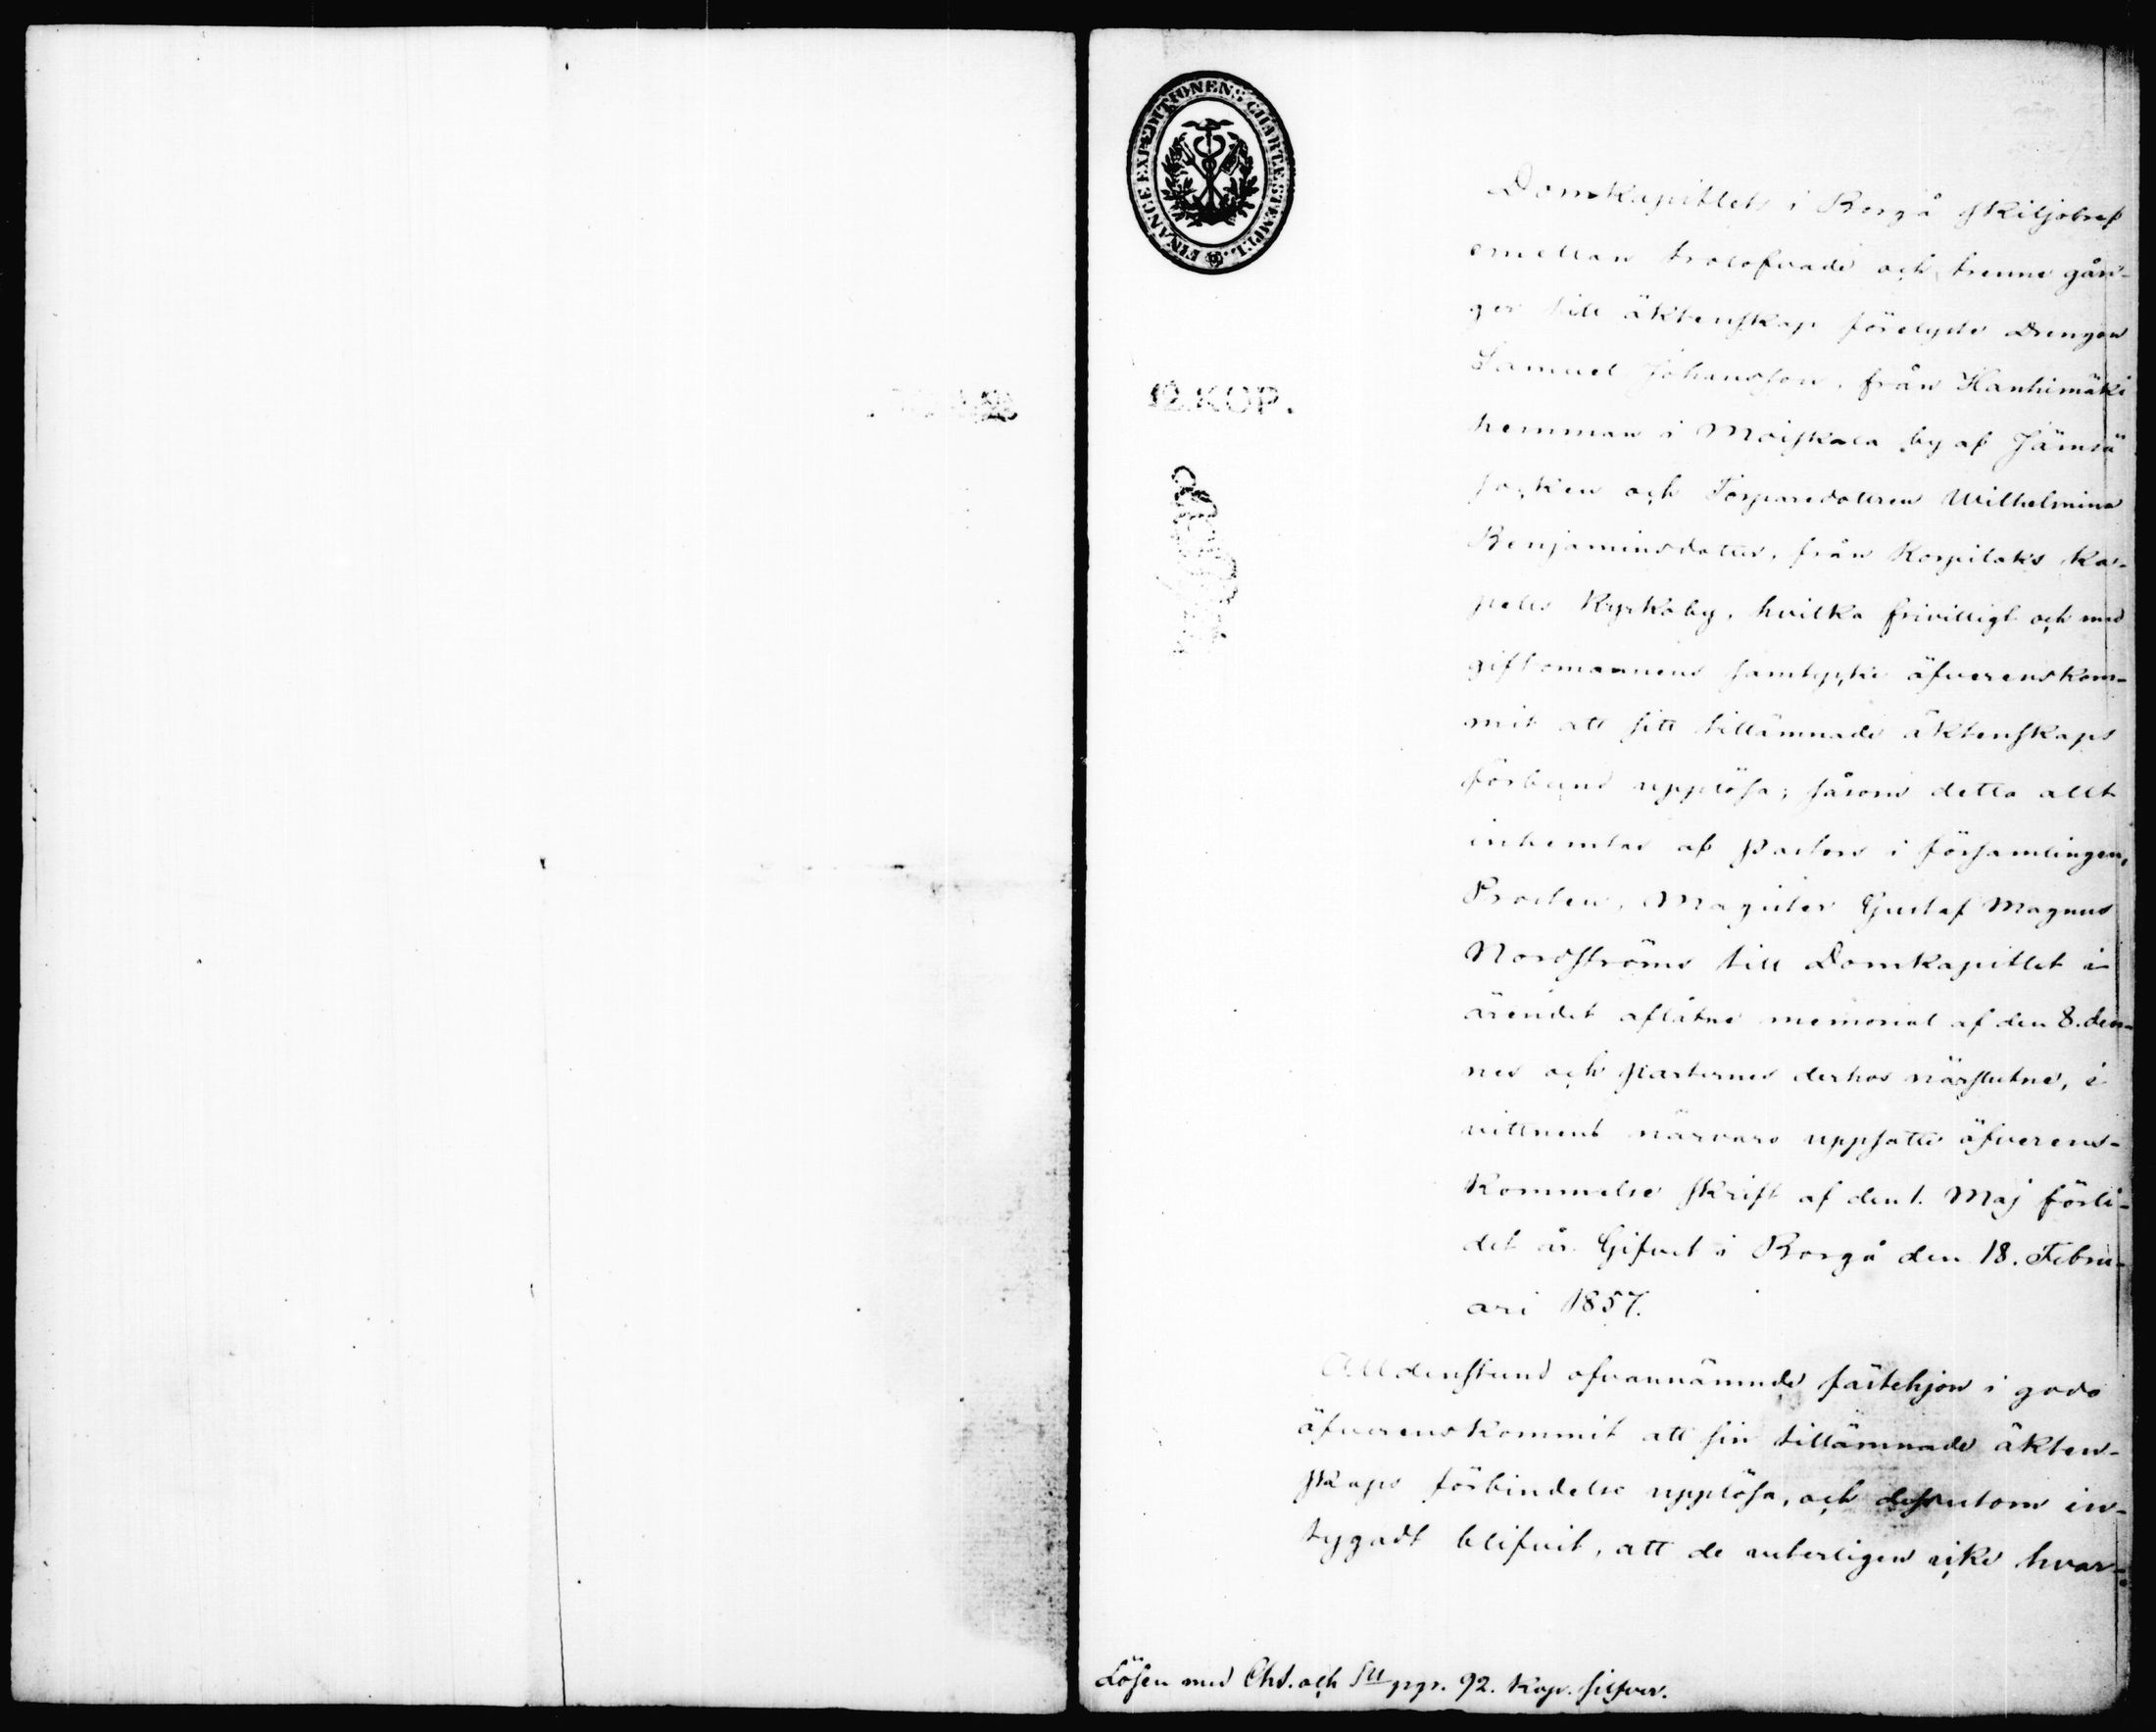 FINANCE EXPEDITIONENS CHARTÆ STEMPEL.
12.KOP.
Domkapitlets i Borgå skiljobref
emellan trolofvade och trenne gån-
ger till äktenskap förelyste Drengen
Samuel Johansson, från Hanhimäki
hemman i Moiskala by af Jämsä
socken och Torparedottren Wilhelmina
Benjaminsdotter, från Korpilaks Ka-
pells Kyrkoby, hvilka frivilligt och med
giftomannens samtycke äfverenskom-
mit att sitt tillämnade äktenskaps
förbund upplösa; såsom detta allt
inhemtas af Pastors i församlingen,
Prosten, Magister Gustaf Magnus
Nordströms till Domkapitlet i
ärendet aflåtne memorial af den 8. den-
nes och parternes derhos närslutne, i
vittnens närvaro uppsatte äfverens-
kommelse skrift af den 1. Maj förli-
det år. Gifvet i Borgå den 18. Febru-
ari 1857.
Alldenstund ofvannämnde fästehjon i godo
äfverenskommit att sin tillämnade äkten-
skaps förbindelse upplösa, och dessutom in-
tygadt blifvit, att de veterligen icke hvar-
Lösen med Chs. och Stt ppr. 92. Kop. silfver.